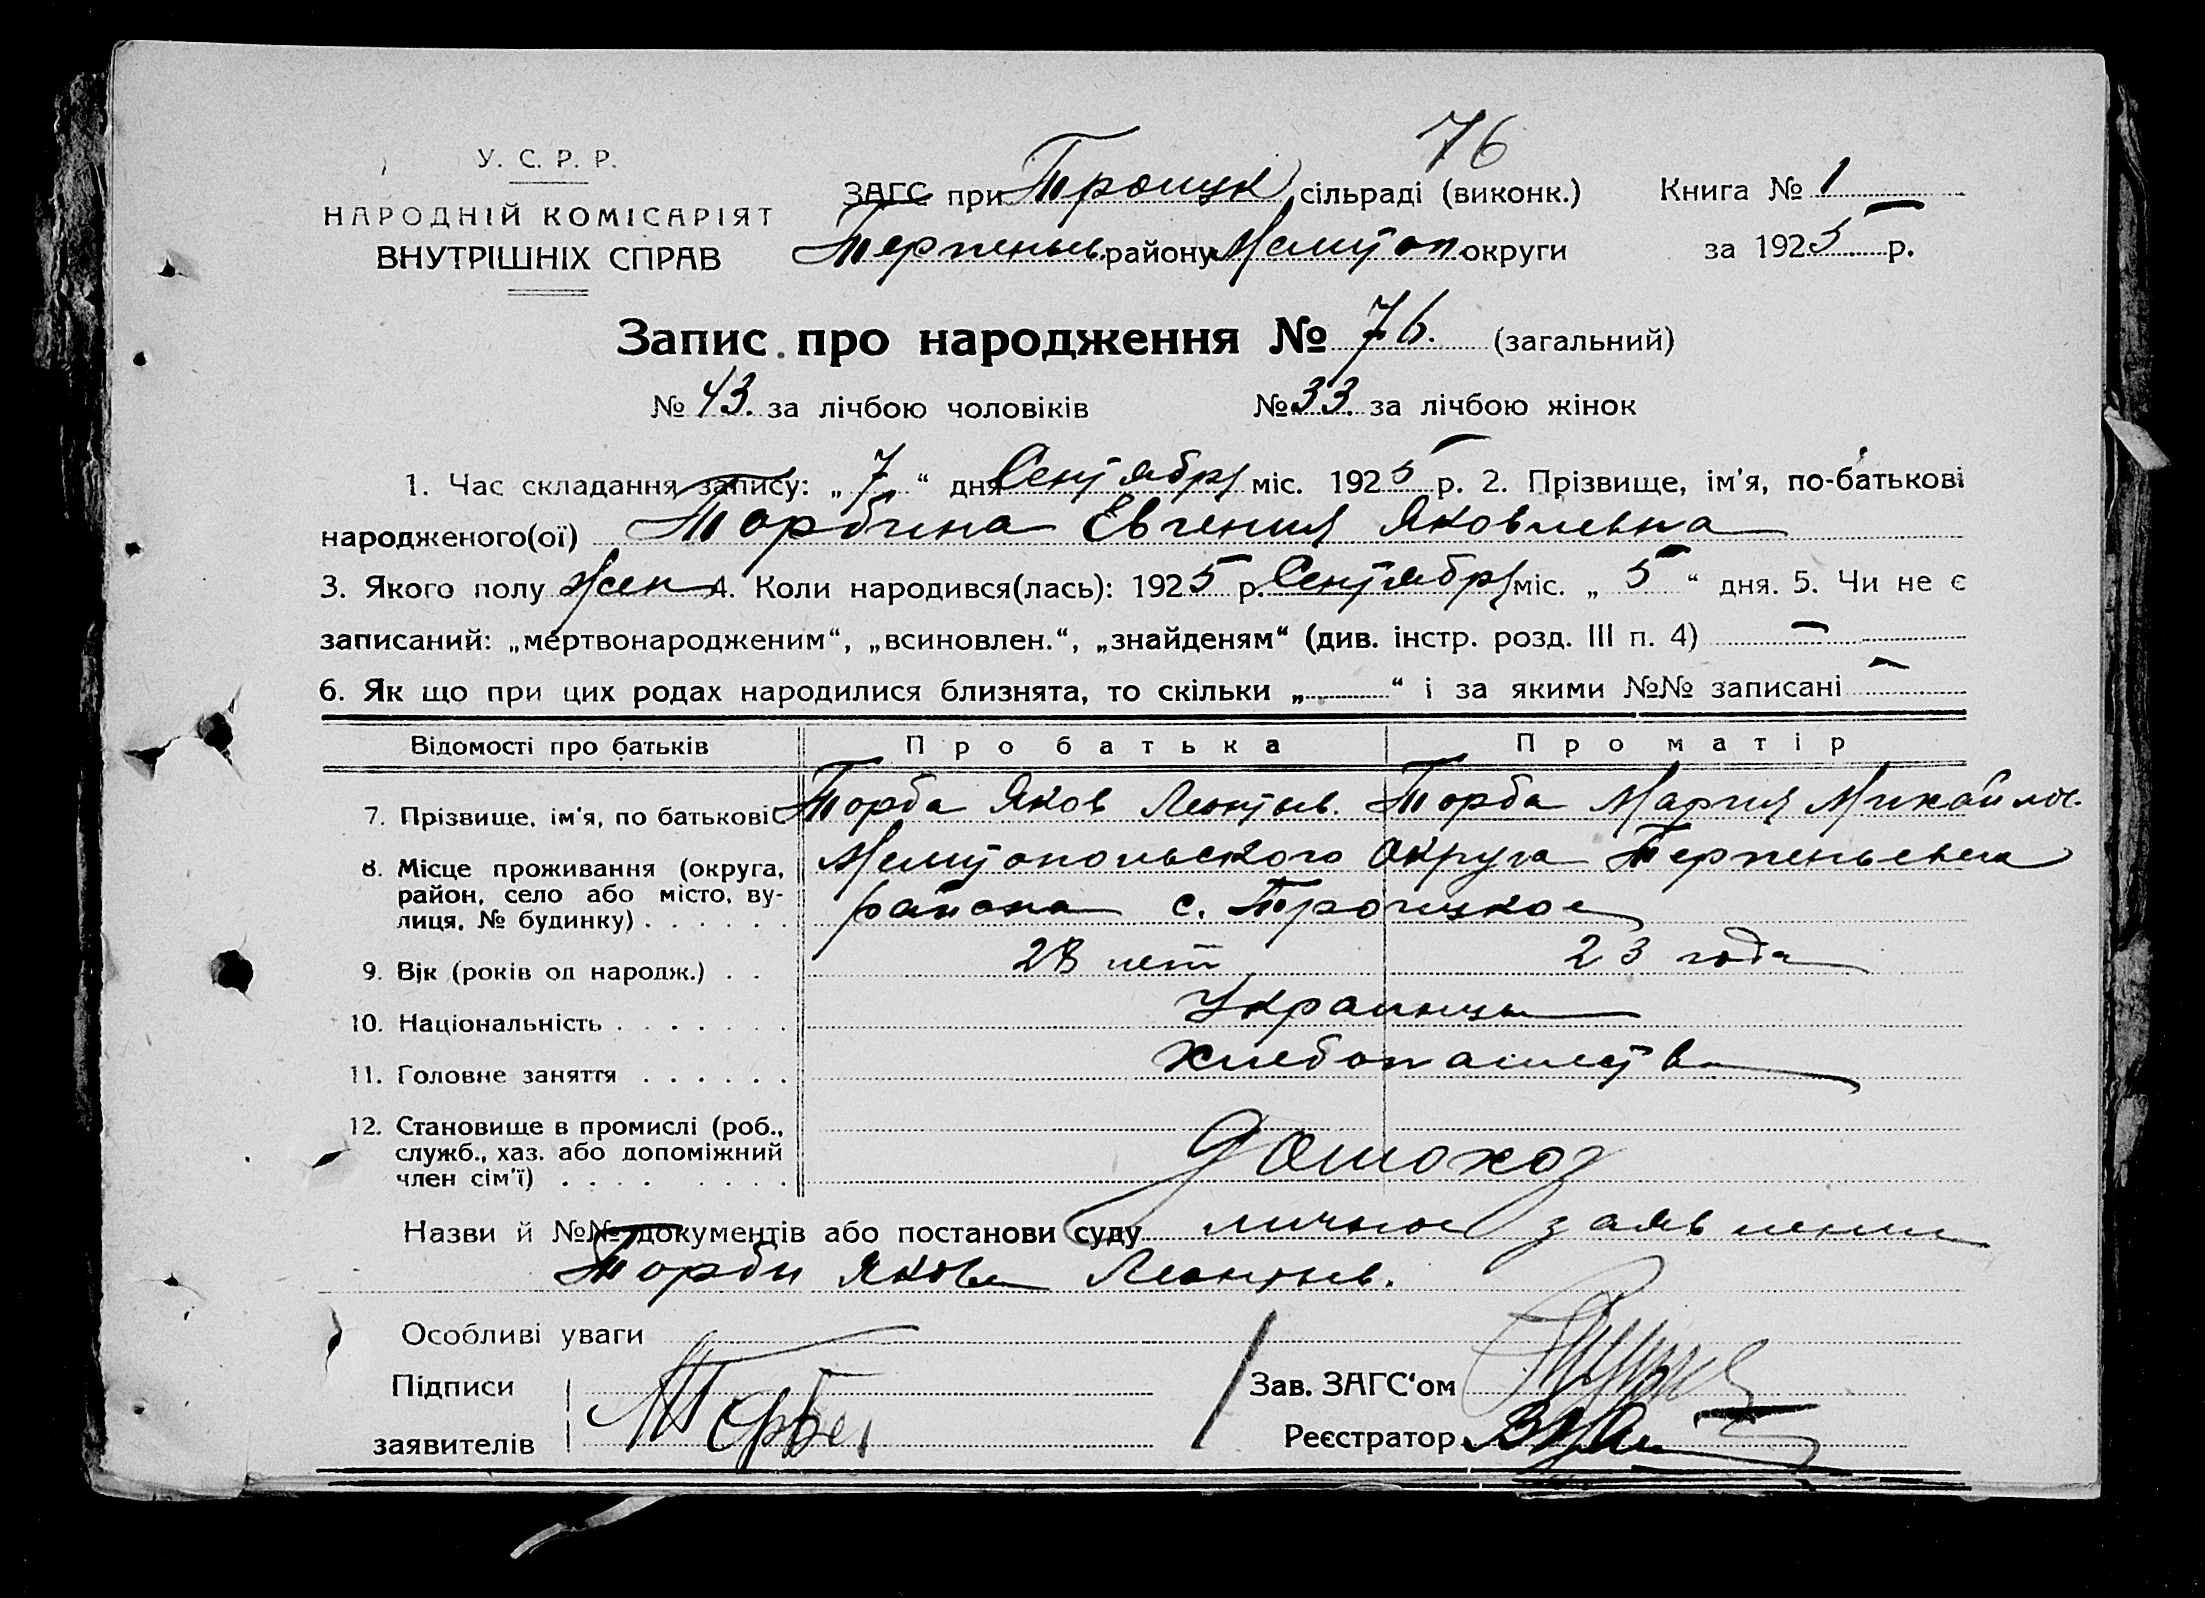 76
У. С. Р. Р.
ЗАГС при Троицк сільраді (виконк.) Книга № 1
НАРОДНІЙ КОМІСАРІЯТ
ВНУТРІШНІХ СПРАВ
Терпеньев. району Мелитоп округи за 1925 р.
Запис про народження № 76. (загальний)
№ 43. за лічбою чоловіків № 33. за лічбою жінок
1. Час складання запису: „ 7 “ дня Сентября міс. 1925 р. 2. Прізвище, ім'я, по-батькові
народженого(ої) Торбина Евгения Яковлевна
3. Якого полу жен 4. Коли народився(лась): 1925 р. Сентября міс. „ 5 “ дня. 5. Чи не є
записаний: „мертвонародженим“, „всиновлен.“, „знайденям“ (див. інстр. розд. III п. 4) —
6. Як що при цих родах народилися близнята, то скільки „ “ і за якими №№ записані —
Відомості про батьків Про батька Про матір
7. Прізвище, ім'я, по батькові Торба Яков Леонтьев. Торба Мария Михайлов.
8. Місце проживання (округа, район, село або місто, вулиця, № будинку) . . . . . . Мелитопольского Округа Терпеньевского
района с. Троицкое
9. Вік (років од народж.) . . 28 лет 23 года
10. Національність . . . . . . . Украинцы
11. Головне заняття . . . . . . хлебопашество
12. Становище в промислі (роб.,
служб., хаз. або допоміжний
член сім'ї) . . . . . . . .
Назви й №№ документів або постанови суду личное заявление
Торбы Якова Леонтьев.
Особливі уваги
Підписи Зав. ЗАГС'ом
заявителів Торба Реєстратор